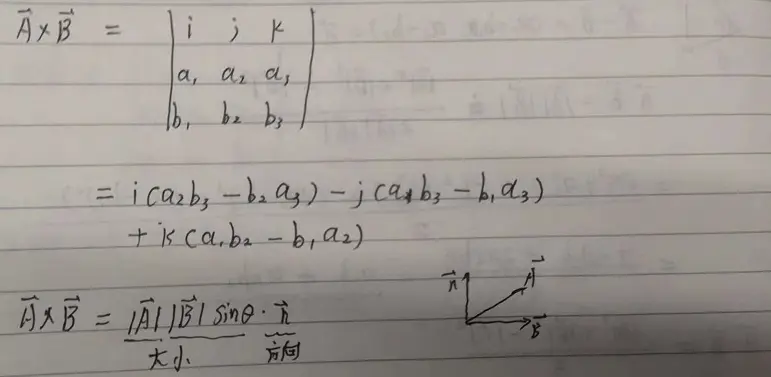 A⃗ × B⃗ = | i j k |
| a₁ a₂ a₃ |
| b₁ b₂ b₃ |
= i(a₂b₃ − b₂a₃) − j(a₁b₃ − b₁a₃)
+ k(a₁b₂ − b₁a₂)
A⃗ × B⃗ = |A⃗| |B⃗| sinθ · n⃗
大小 方向
n⃗ A⃗
B⃗